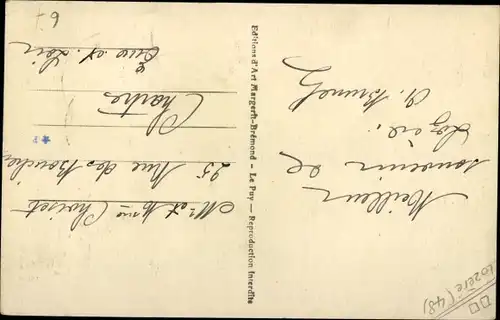 Meilleur
souvenir de
Lozère.
A. Brunel
Editions d'Art Margerit-Brémond – Le Puy — Reproduction Interdite
Mr et Mme Choiset
25 Rue des Bouchers
Chartres
Eure et Loir
6-
Lozère (48)